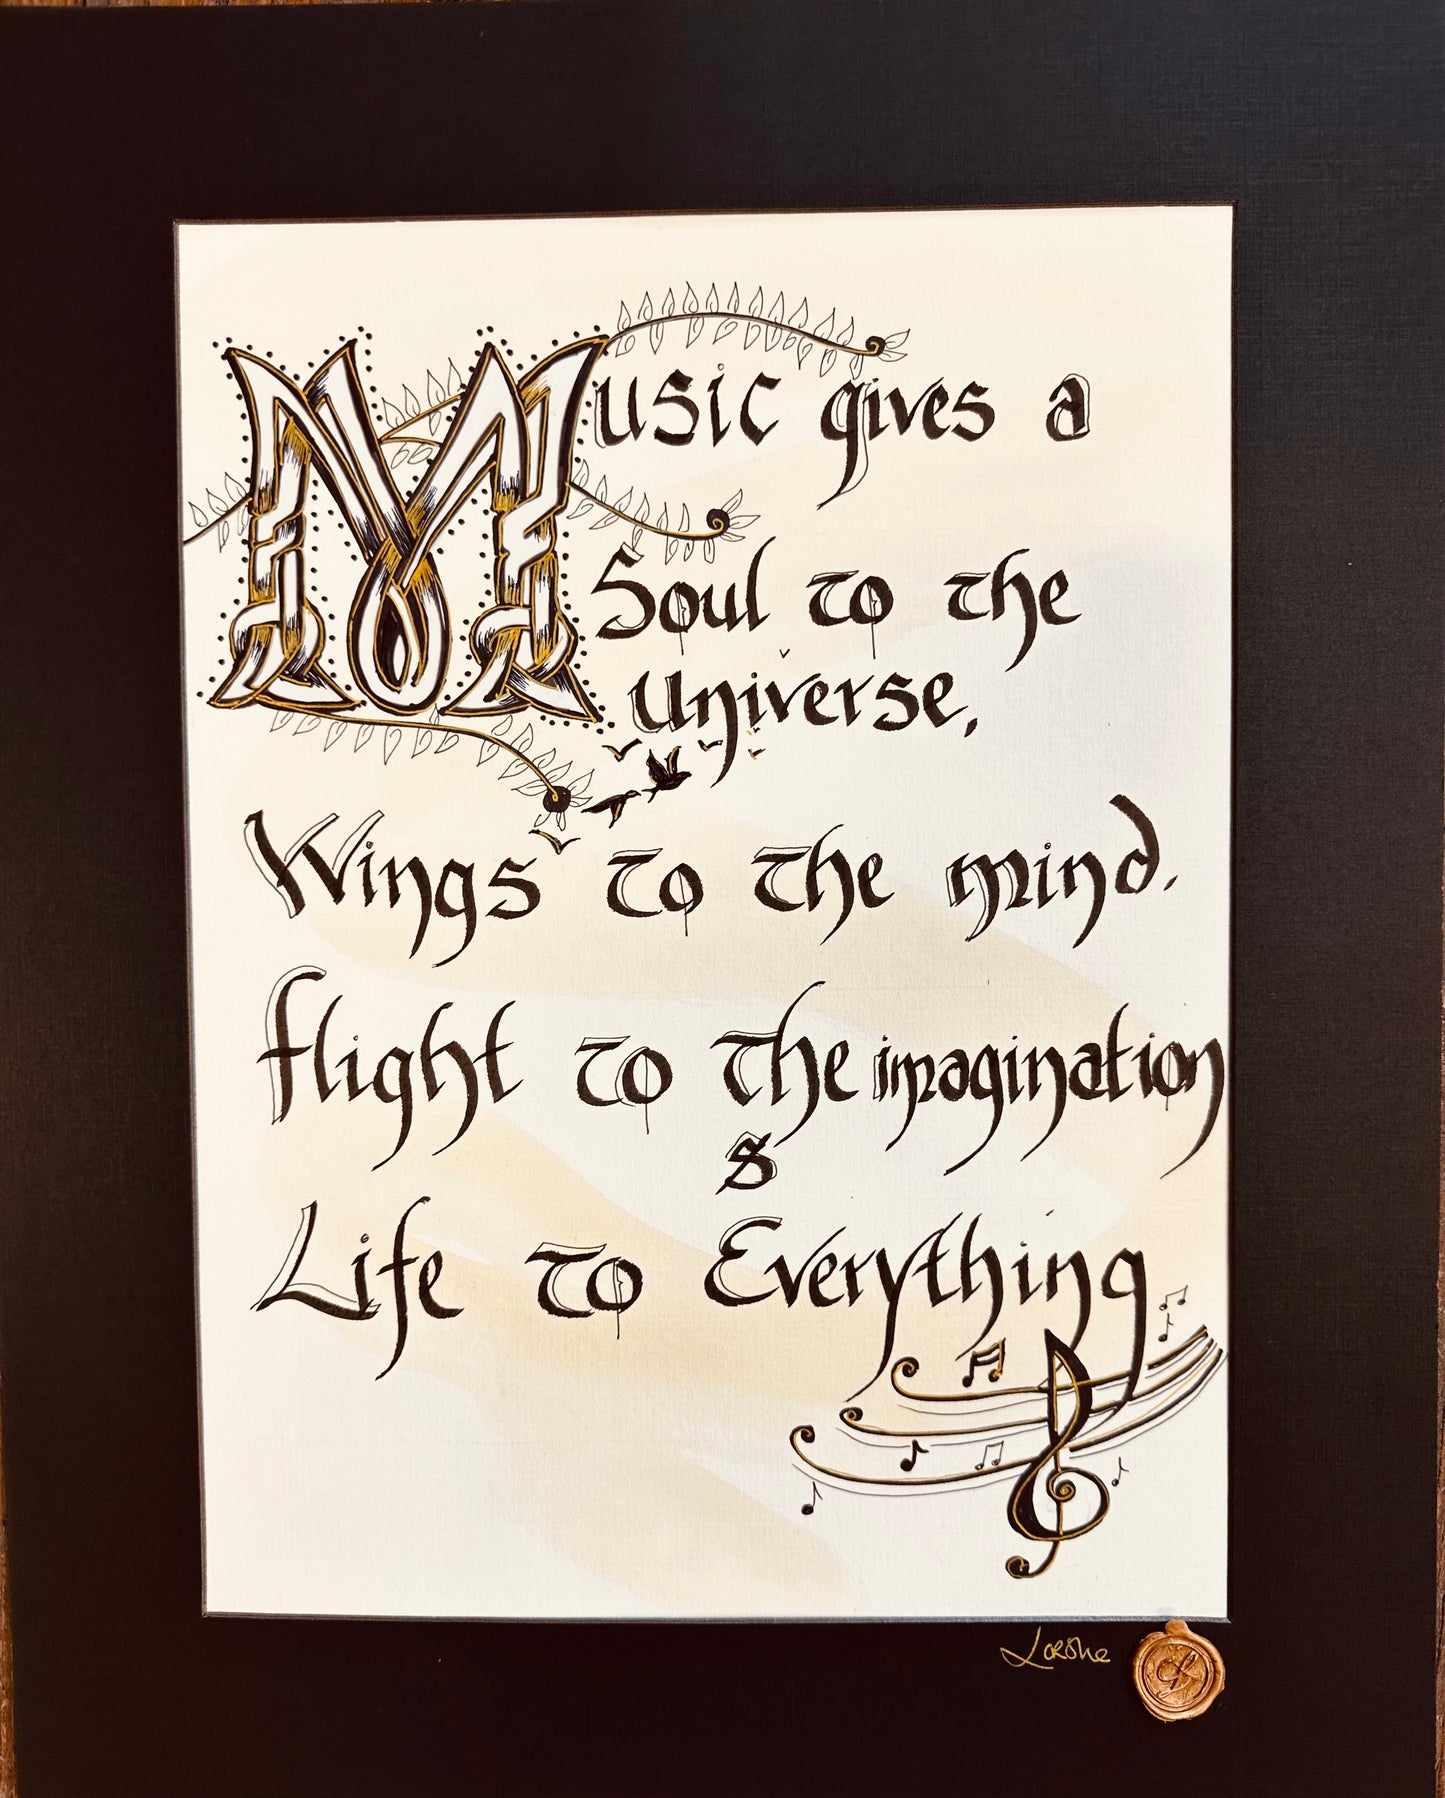 Music gives a
Soul to the
Universe,
Wings to the mind.
flight to the imagination
&
Life to Everything